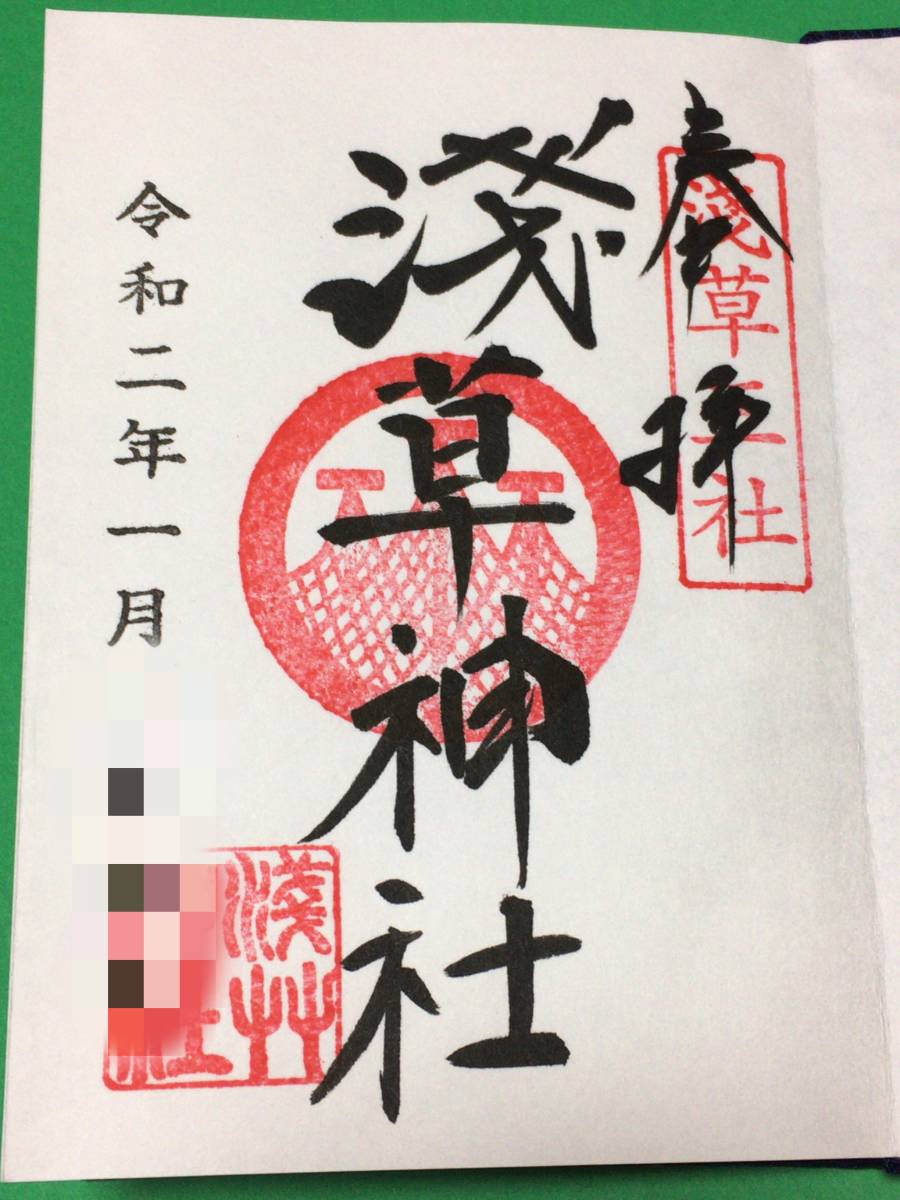 奉拝
淺草三社
淺草神社
令和二年一月
淺艸
社